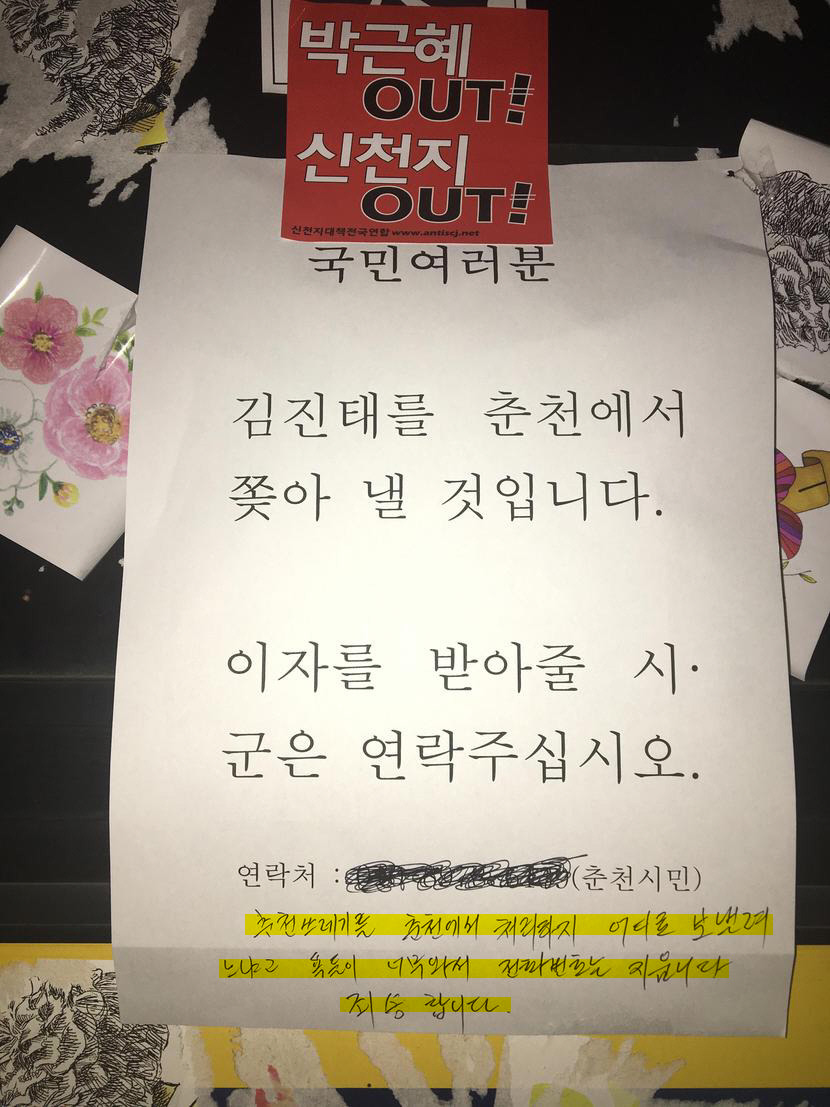 박근혜
OUT!
신천지
OUT!
신천지대책전국연합 www.antiscj.net
국민여러분
김진태를 춘천에서
쫓아 낼 것입니다.
이자를 받아줄 시·
군은 연락주십시오.
연락처 : (춘천시민)
춘천쓰레기를 춘천에서 처리하지 어디로 보낼려
느냐고 욕들이 너무와서 전화번호는 지웁니다
죄송 합니다.